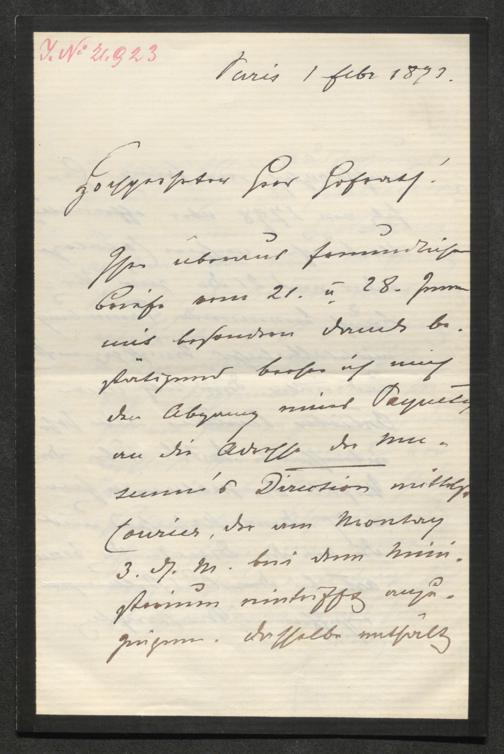 J. N° 21.923
Paris 1 febr 1873.
Hochgeehrter Herr Hofrath!
Ihre überaus freundlichen
Briefe vom 21. u 28. Jänn
mit besondrem Danke be-
stätigend beehre ich mich
den Abgang eines Paquetes
an die Adresse der Mu-
seum's Direction mittelst
Courier, der am Montag
3. d. M. bei dem Mini-
sterium eintrifft anzu-
zeigen. Dasselbe enthält